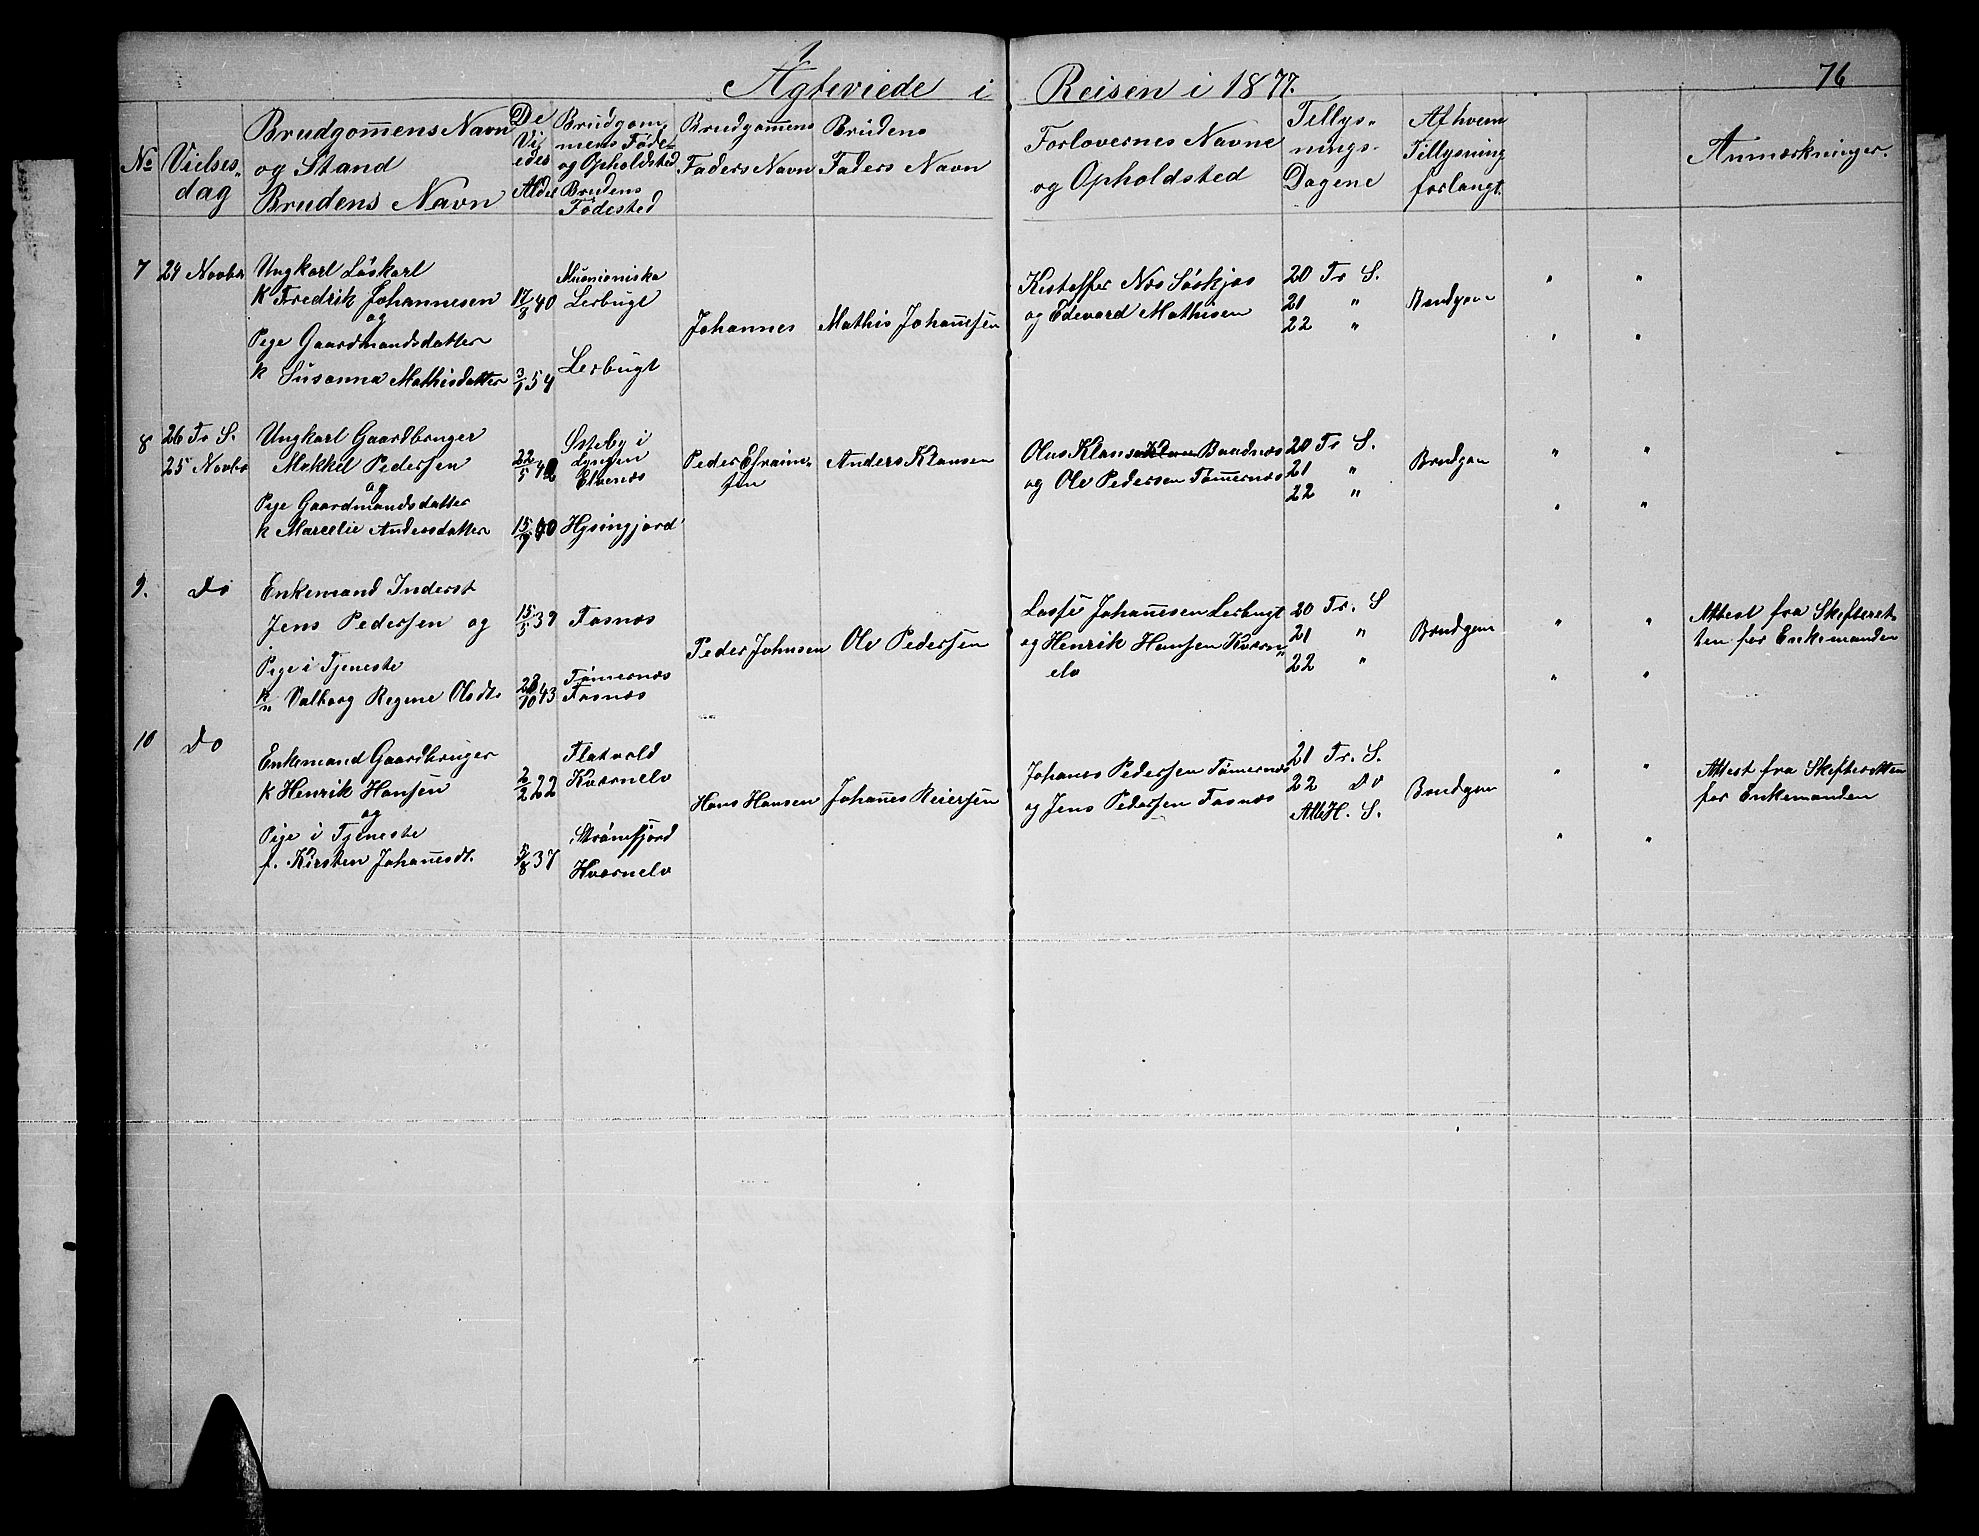 Ægteviede i Reisen i 1877.
76
No
Vielses-
dag
Brudgomens Navn
og Stand
Brudens Navn
De
Vi
edes
Alder
Brudgom
mens Føde-
og Opholdsted
Brudens
Fødested
Brudgomens
Faders Navn
Brudens
Faders Navn
Forlovernes Navne
og Opholdsted
Tillys-
nings-
Dagene
Af hvem
Tillysning
forlangt.
Anmærkninger.
7
24 Novber
Ungkarl Löskarl
K Fredrik Johannesen
og
Pige Gaardmandsdatter
k Susanna Mathisdatter
17/8 40
3/1 54
Muonioniska
Lerbugt
Lerbugt
Johannes
Mathis Johanesen
Kristoffer Nos Søskjos
og Edevard Mathisen
20 Tr S.
21 "
22 "
Brudgom
" "
" "
8
26 Tr S.
25 Novbr
Ungkarl Gaardbruger
Mikkel Pedersen
og
Pige Gaardmandsdatter
k Marcelie Andersdatter
22/5 42
15/7 40
Østeby i
Lyngen
Elvenæs
Hysingjord
Peder Efraim-
sen
Anders Klausen
Olus Klausen Baadnæs
og Ole Pedersen Tømernæs
20 Tr S.
21 "
22 "
Brudgom
" "
" "
9.
Do
Enkemand Inderst
Jens Pedersen og
Pige i Tjeneste
k/n Valborg Regine Olsdt.
15/5 39
28/10 43
Tasnæs
Tømernæs
Tasnæs
Peder Johnsen
Ole Pedersen
Lasse Johanesen Lerbugt
og Henrik Hansen Kværn-
elv
20 Tr. S
21 "
22 "
Brudgom
" "
" "
Attest fra Skifteret-
ten for Enkemanden
10
Do
Enkemand Gaardbruger
K Henrik Hansen
og
Pige i Tjeneste
f. Kirsten Johanesdt.
2/2 22
5/8 37
Flatvold
Kværnelv
Strømfjord
Kværnelv
Hans Hansen
Johanes Reiersen
Johanes Pedersen Tømernæs
og Jens Pedersen Tasnæs
21 Tr. S.
22 Do
Alle H. S.
Brudgom
" "
" "
Attest fra Skifteretten
for Enkemanden